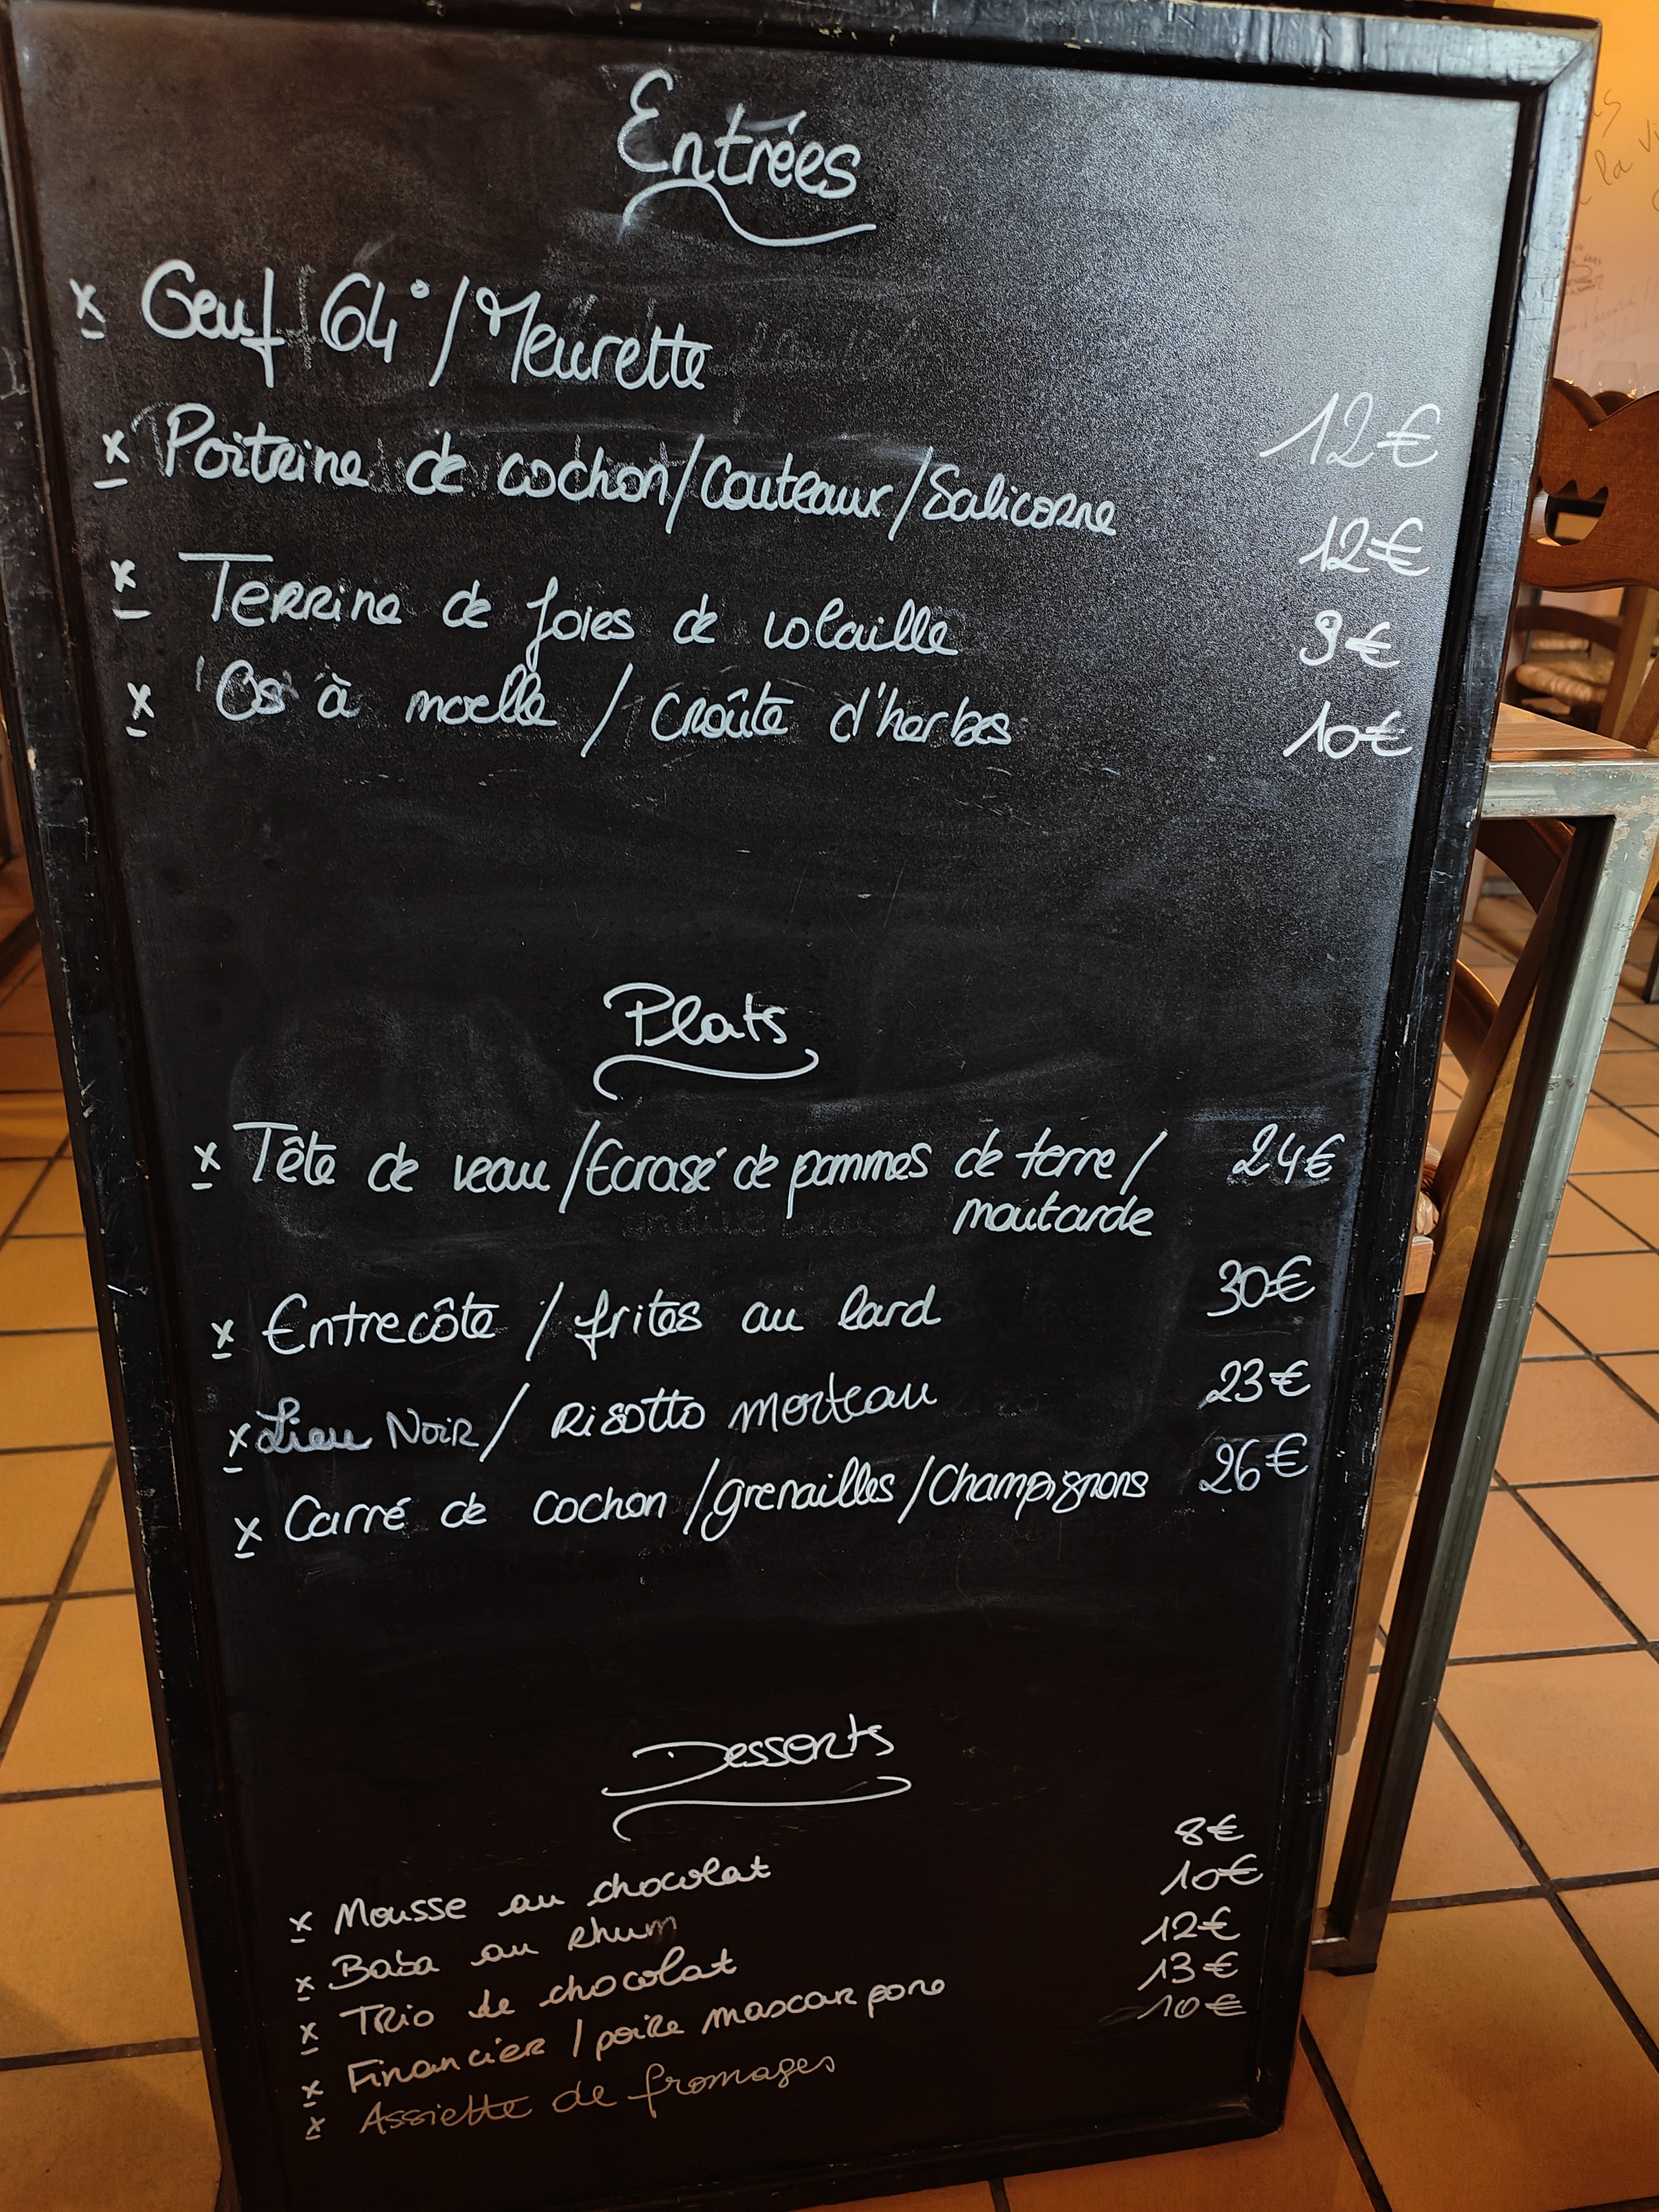 Entrées
x Oeuf 64°/Meurette 12€
x Poitrine de cochon/Couteaux/Salicorne 12€
x Terrine de foies de volaille 9€
x Os à moelle / Croûte d'herbes 10€
Plats
x Tête de veau/Ecrasé de pommes de terre/ 24€
moutarde
x Entrecôte / frites au lard 30€
x Lieu Noir/ Risotto morteau 23€
x Carré de cochon/grenailles/Champignons 26€
Desserts
x Mousse au chocolat 8€
x Baba au rhum 10€
x Trio de chocolat 12€
x Financier / poire mascarpone 13€
x Assiette de fromages 10€